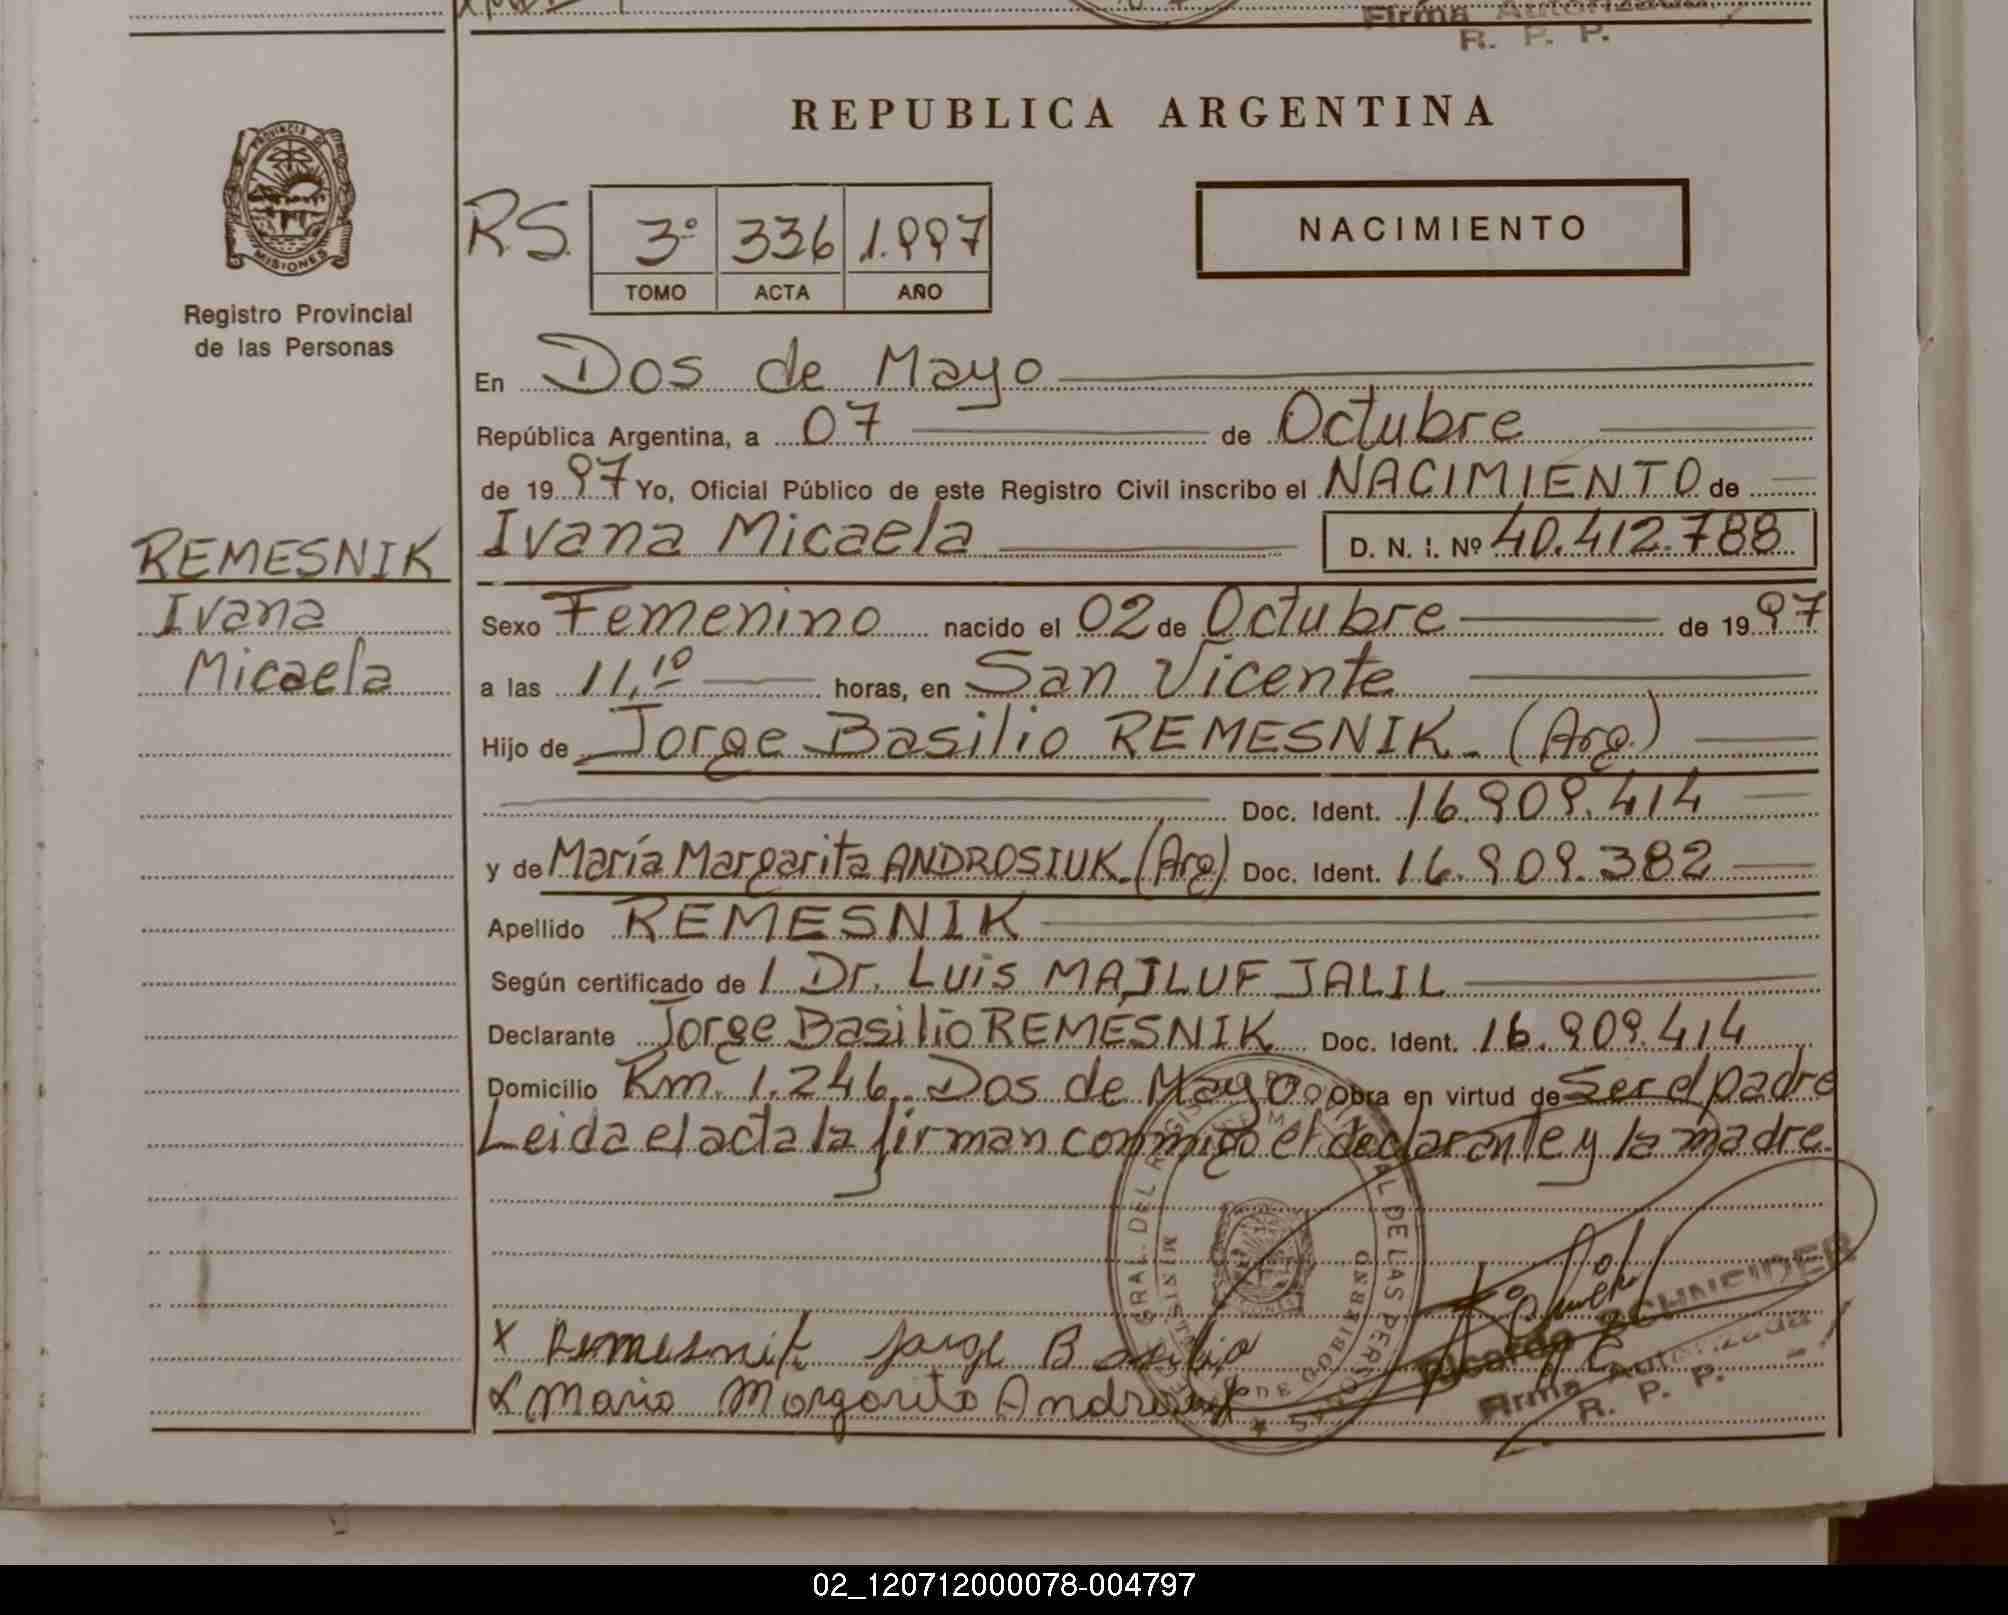 Firma Autorizada
R. P. P.
REPUBLICA ARGENTINA
PROVINCIA DE
MISIONES
Registro Provincial
de las Personas
RS. 3º 336 1.997
TOMO ACTA AÑO
NACIMIENTO
En Dos de Mayo
República Argentina, a 07 de Octubre
de 1997 Yo, Oficial Público de este Registro Civil inscribo el NACIMIENTO de
REMESNIK
Ivana
Micaela
Ivana Micaela D. N. I. Nº 40.412.788
Sexo Femenino nacido el 02 de Octubre de 1997
a las 11,10 horas, en San Vicente
Hijo de Jorge Basilio REMESNIK. (Arg.)
Doc. Ident. 16.909.414
y de María Margarita ANDROSIUK. (Arg) Doc. Ident. 16.909.382
Apellido REMESNIK
Según certificado de / Dr. Luis MAJLUF JALIL
Declarante Jorge Basilio REMESNIK Doc. Ident. 16.909.414
Domicilio Km. 1.246. Dos de Mayo Obra en virtud de Ser el padre
Leida el acta la firman conmigo el declarante y la madre.
x Remesnik Jorge Basilio
x Maria Margarita Androsiuk
Ricardo SCHNEIDER
Firma Autorizada
R. P. P.
02_120712000078-004797